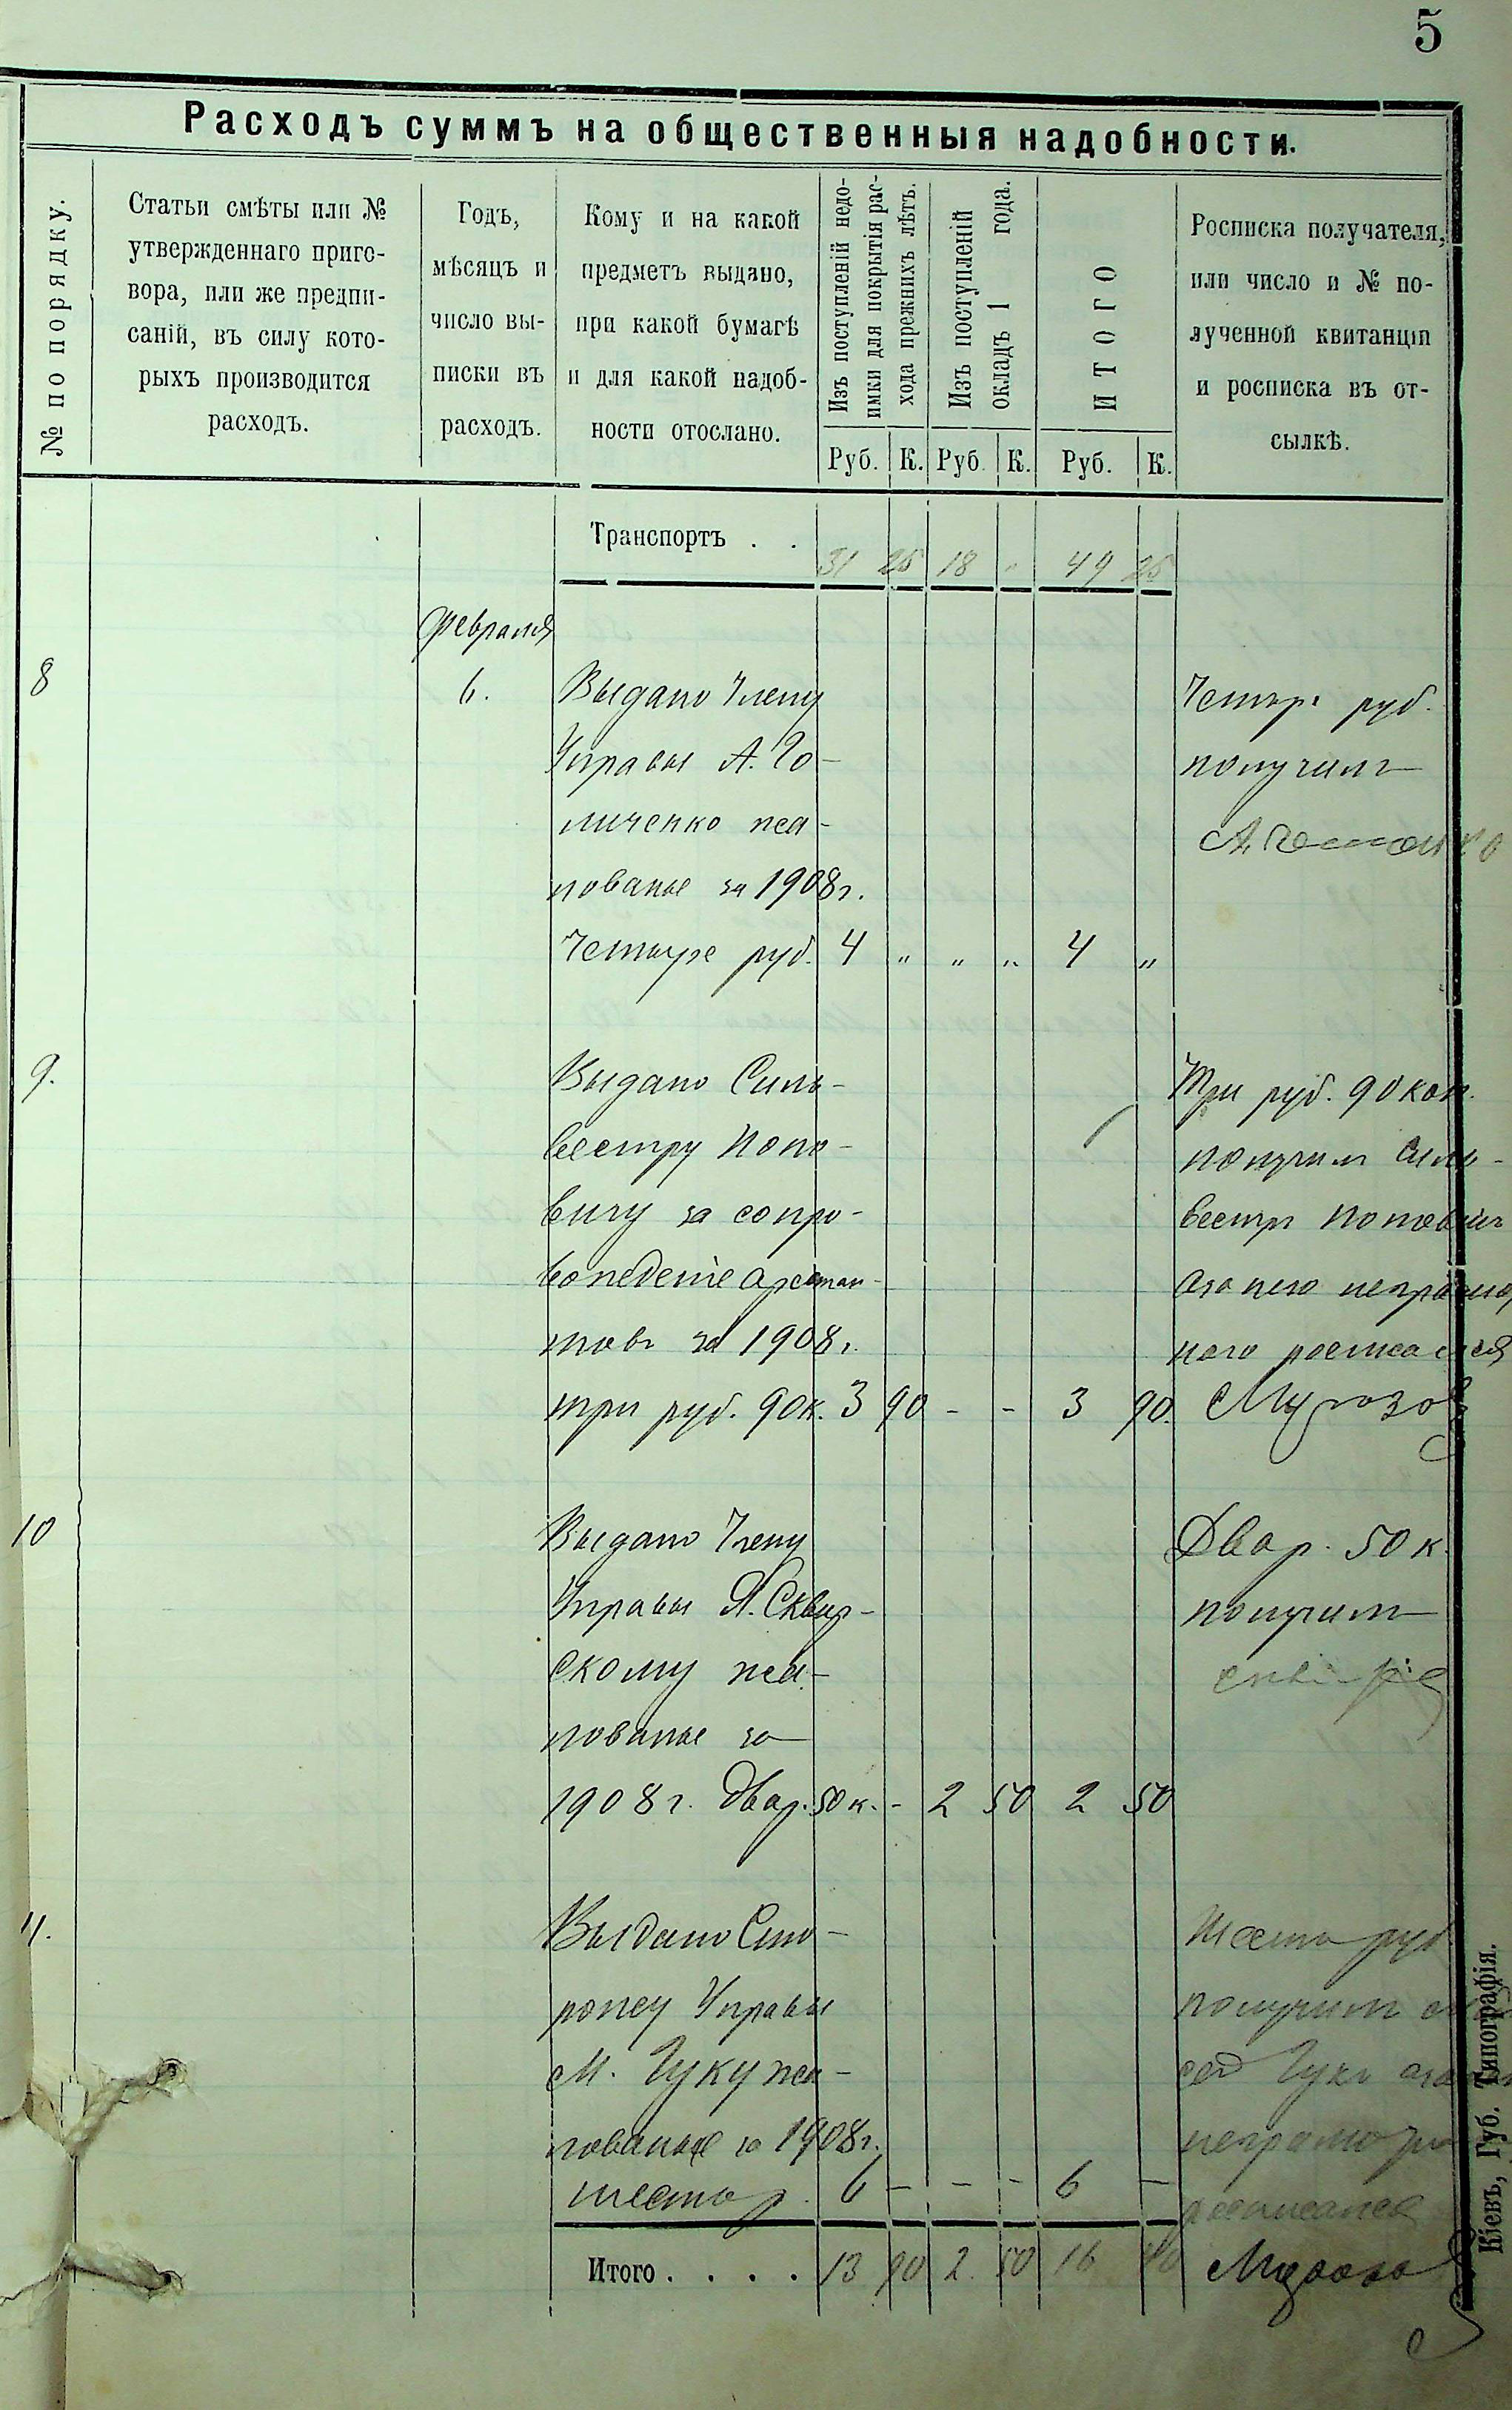 5
Расходъ суммъ на общественныя надобности.
№ по порядку.
Статьи смѣты или №
утвержденнаго приго-
вора, или же предпи-
саній, въ силу кото-
рыхъ производится
расходъ.
Годъ,
мѣсяцъ и
число вы-
писки въ
расходъ.
Кому и на какой
предметъ выдано,
при какой бумагѣ
и для какой надоб-
ности отослано.
Изъ поступленій недо-
имки для покрытія рас-
хода прежнихъ лѣтъ.
Изъ поступленій
окладъ 1 года.
ИТОГО
Росписка получателя,
или число и № по-
лученной квитанціи
и росписка въ от-
сылкѣ.
Руб. К. Руб. К. Руб. К.
Транспортъ . . 31 25 18 " 49 25
Февраля
8 6. Выдано Члену
Управы А. Го-
личенко жа-
лованье за 1908 г.
Четыре руб. 4 " " " 4 "
Четыре руб.
получилъ
9. Выдано Силь-
вестру Попо-
вичу за сопро-
вожденіе арестан-
товъ за 1908 г.
три руб. 90 к. 3 90 - - 3 90.
Три руб. 90 коп.
получилъ Силь-
вестръ Поповичъ
а за него неграмот
наго росписался
Мурозов
10 Выдано Члену
Управы Я. Сквир-
скому жа-
лованье за
1908 г. два р. 50 к. - 2 50 2 50
Два р. 50 к.
получилъ
11. Выдано Сто-
рожу Управы
М. Гуку жа-
лованье за 1908 г.
шесть р. 6 - - - 6 -
Шесть руб.
получилъ
Гукъ а за
неграмотн
росписался
Итого . . . . 13 90 2 50 16 40
Кіевъ, Губ. Типографія.